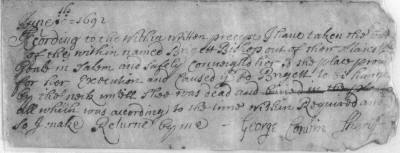 June 10th - 1692
According to the Within written precept I have taken the body
of the within named Brigett Bishop out of their Majesties
Goale in Salem and Safely Conveighed her to the place provided
for her Execution and Caused ye sd Brigett to be hanged
by the neck untill Shee was dead and buried in the
all which was according to the time within Required and
So I make Returne by me
George Corwin Sheriff